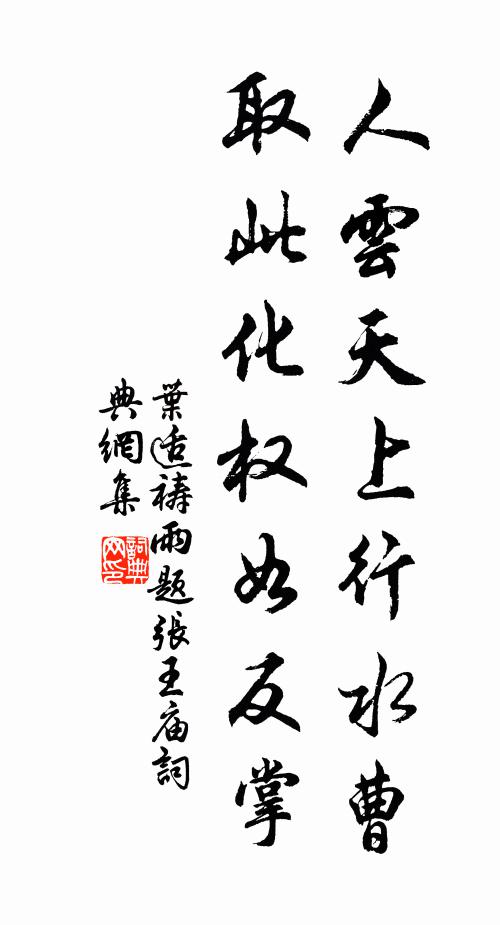 人雲天上行水曹
取此化权如反掌
葉适禱雨題張王庙詞
典網集
詞典网印